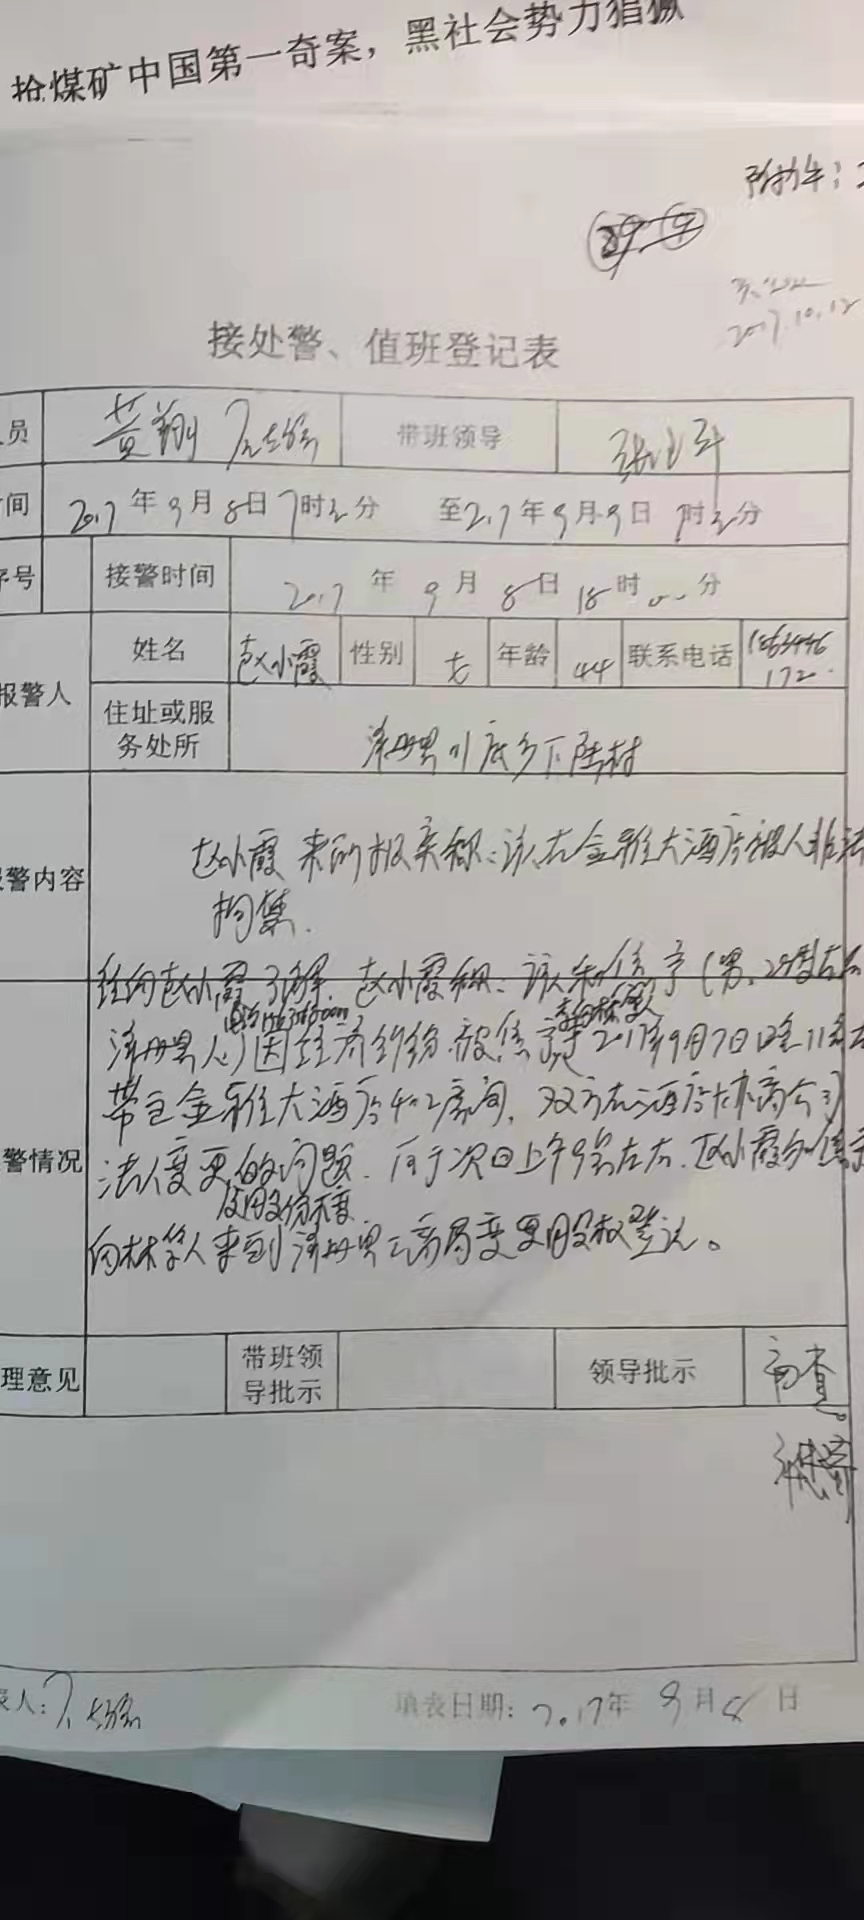 抢煤矿中国第一奇案，黑社会势力猖獗
附件：2
2017.10.12
接处警、值班登记表
员 黄翔 带班领导
间 2017年9月8日7时30分 至2017年9月9日7时30分
序号 接警时间 2017年9月8日18时00分
报警人 姓名 赵小霞 性别 女 年龄 44 联系电话
172
住址或服务处所 泽州县川底乡下陆村
报警内容 赵小霞来所报案称：该人在金雅大酒店被人非法
拘禁.
经向赵小霞了解，赵小霞称：该人和焦宇（男，28岁左右
泽州县人）因经济纠纷，被焦宇 2017年9月7日晚11点左
带至金雅大酒店402房间，双方在酒店 商公司
警情况 法人变更的问题. 后于次日上午9点左右，赵小霞和焦宇
及股份 变
向林等人来到泽州县工商局变更股权登记。
理意见 带班领导批示 领导批示 审查。
表人： 填表日期：2017年9月8日